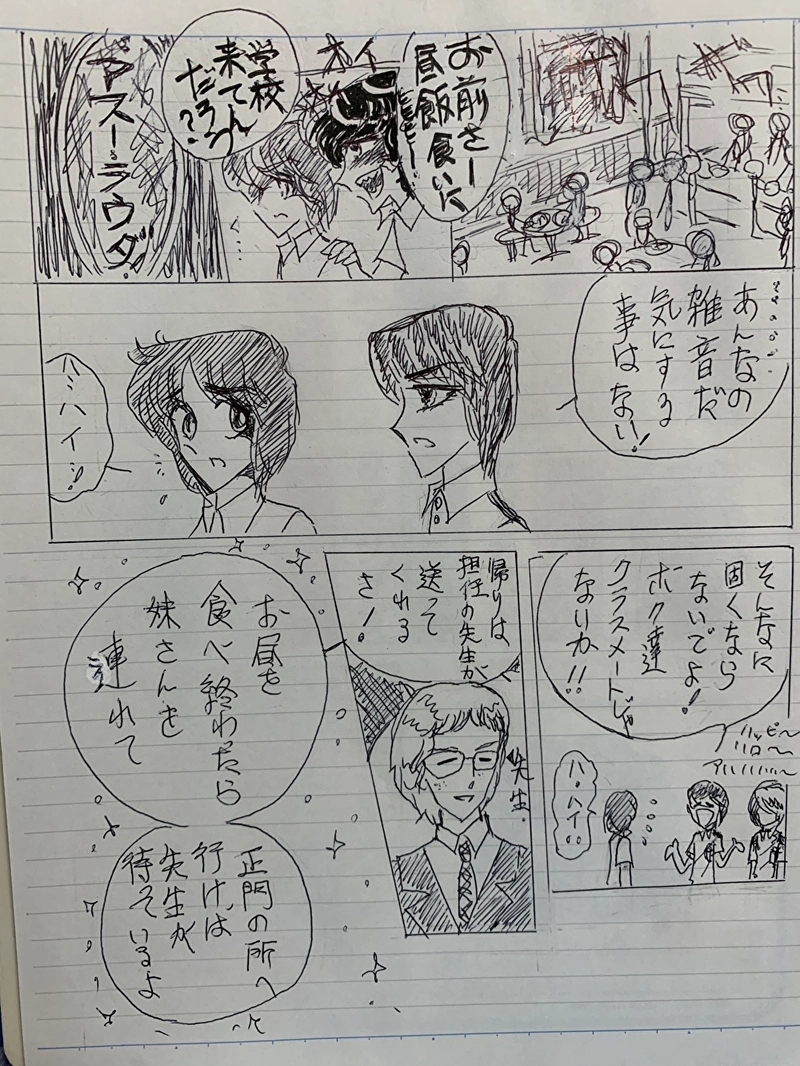 お前さー
昼飯食いに
学校
来てん
だろう?
オイ
オイ
あんなの
雑音だ
気にする
事はない!
ハ、ハイッ!
そんなに
固くなら
ないでよ!
ボク達
クラスメートじゃ
ないか!!
ハッピ〜
ハロ〜
アハハハハハ〜
ハ、ハイ‥
帰りは
担任の先生が
送って
くれる
さ!
先生.
お昼を
食べ終わったら
妹さんを
連れて
正門の所へ
行けば
先生が
待っているよ